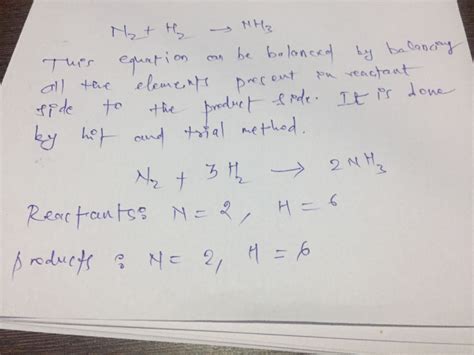 N₂ + H₂ → NH₃
This equation can be balanced by balancing
all the elements present in reactant
side to the product side. It is done
by hit and trial method.
N₂ + 3H₂ → 2NH₃
Reactants: N = 2, H = 6
products : N = 2, H = 6